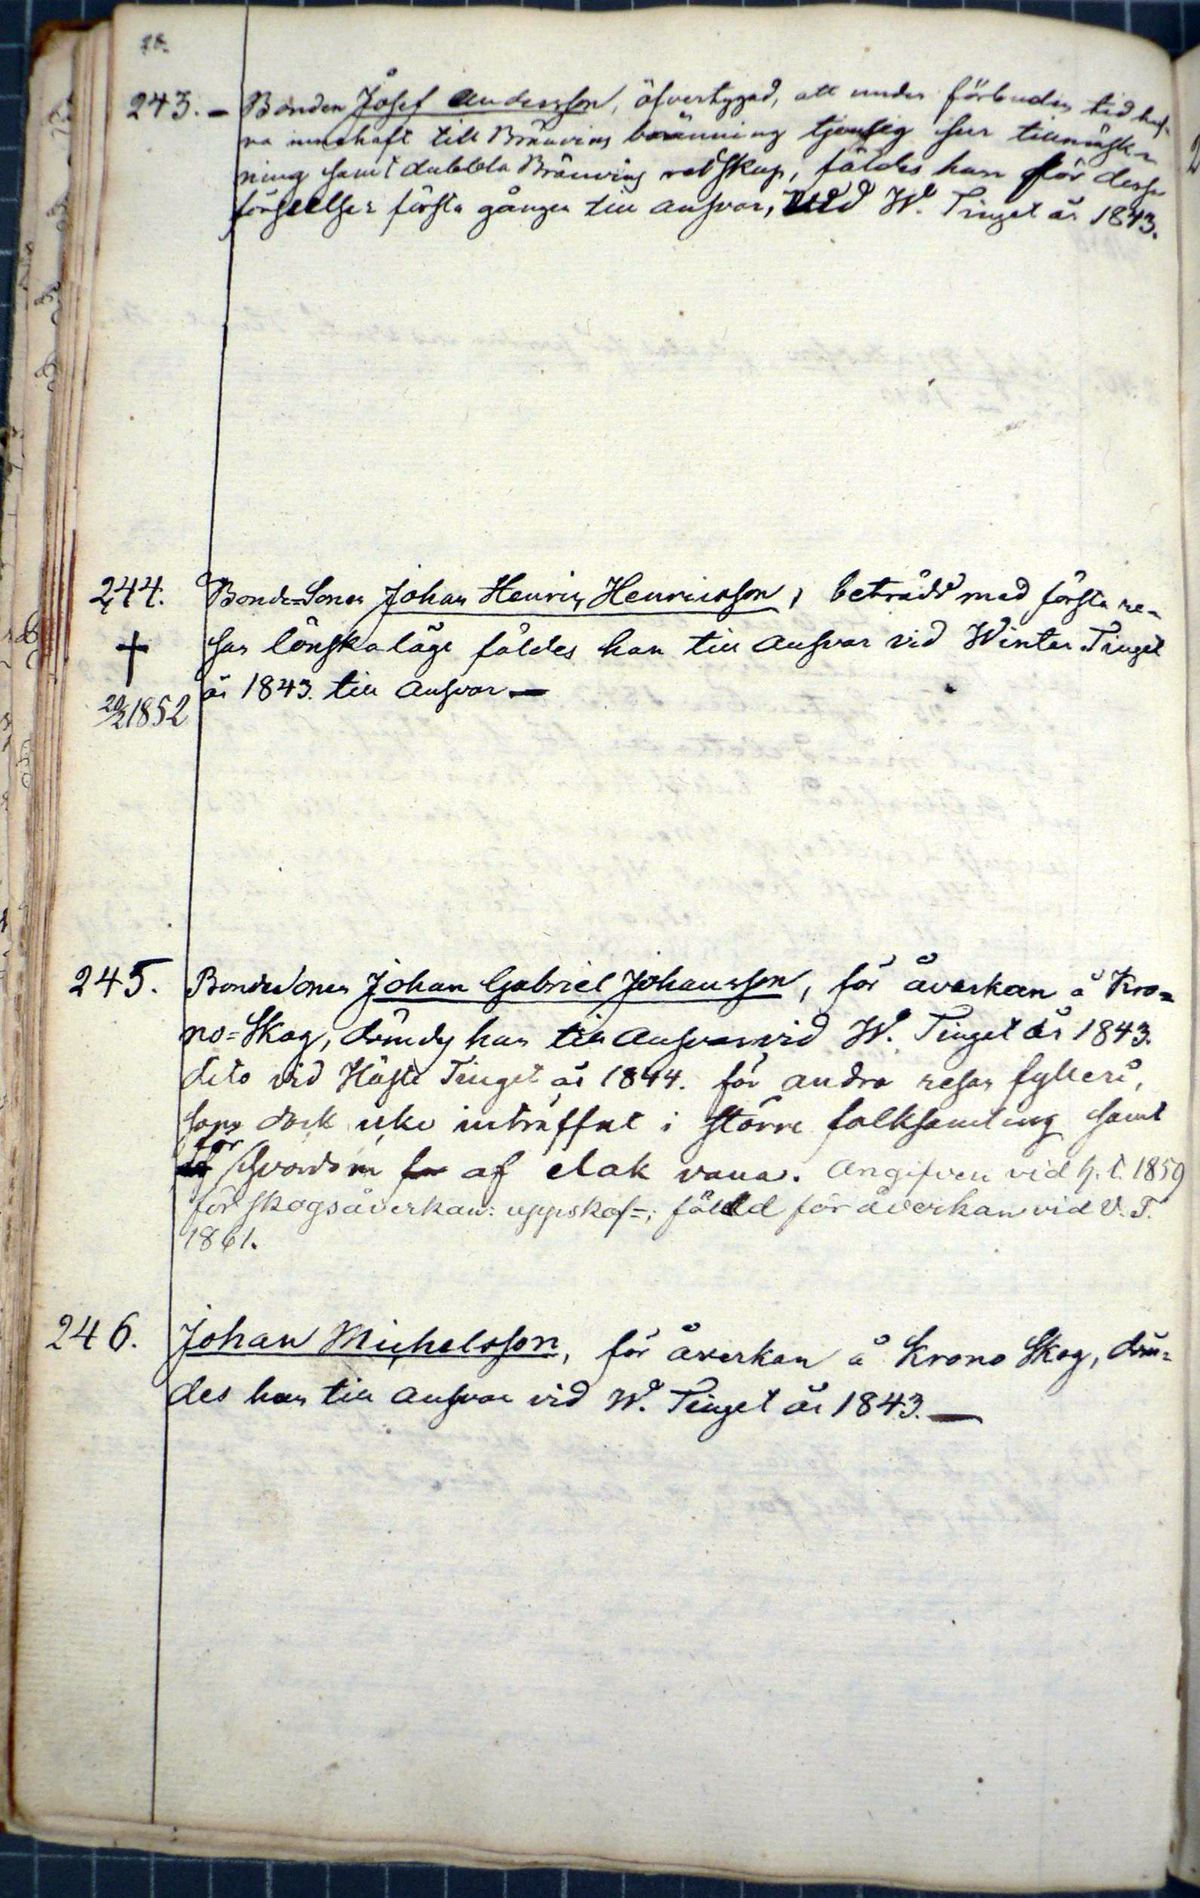 243. – Bonden Josef Andersson, öfvertygad, att under förbuden tid haf-
va innehaft till Bränvins bränning tjenlig
ning samt dubbla Bränvins redskap, fäldes han för dessa
förseelser första gången till ansvar, vid W. Tinget år 1843.
244. Bonde-Sonen Johan Henric Henricsson, beträdd med första re-
san lönskaläge fäldes han till ansvar vid Winter Tinget
år 1843. till ansvar —
† 20/2 1852
245. Bondesonen Johan Gabriel Johansson, för åverkan å Kro=
no=Skog, dömdes han till Ansvar vid W. Tinget år 1843.
dito vid Höste Tinget år 1844. för andra resan fylleri,
som dock icke inträffat i större folksamling samt
för svordom af elak vana. Angifven vid H. T. 1859
för skogsåverkan: uppskof=; fälld för åverkan vid V. T.
1861.
246. Johan Michelsson, för åverkan å Krono Skog, döm=
des han till ansvar vid W. Tinget år 1843. —